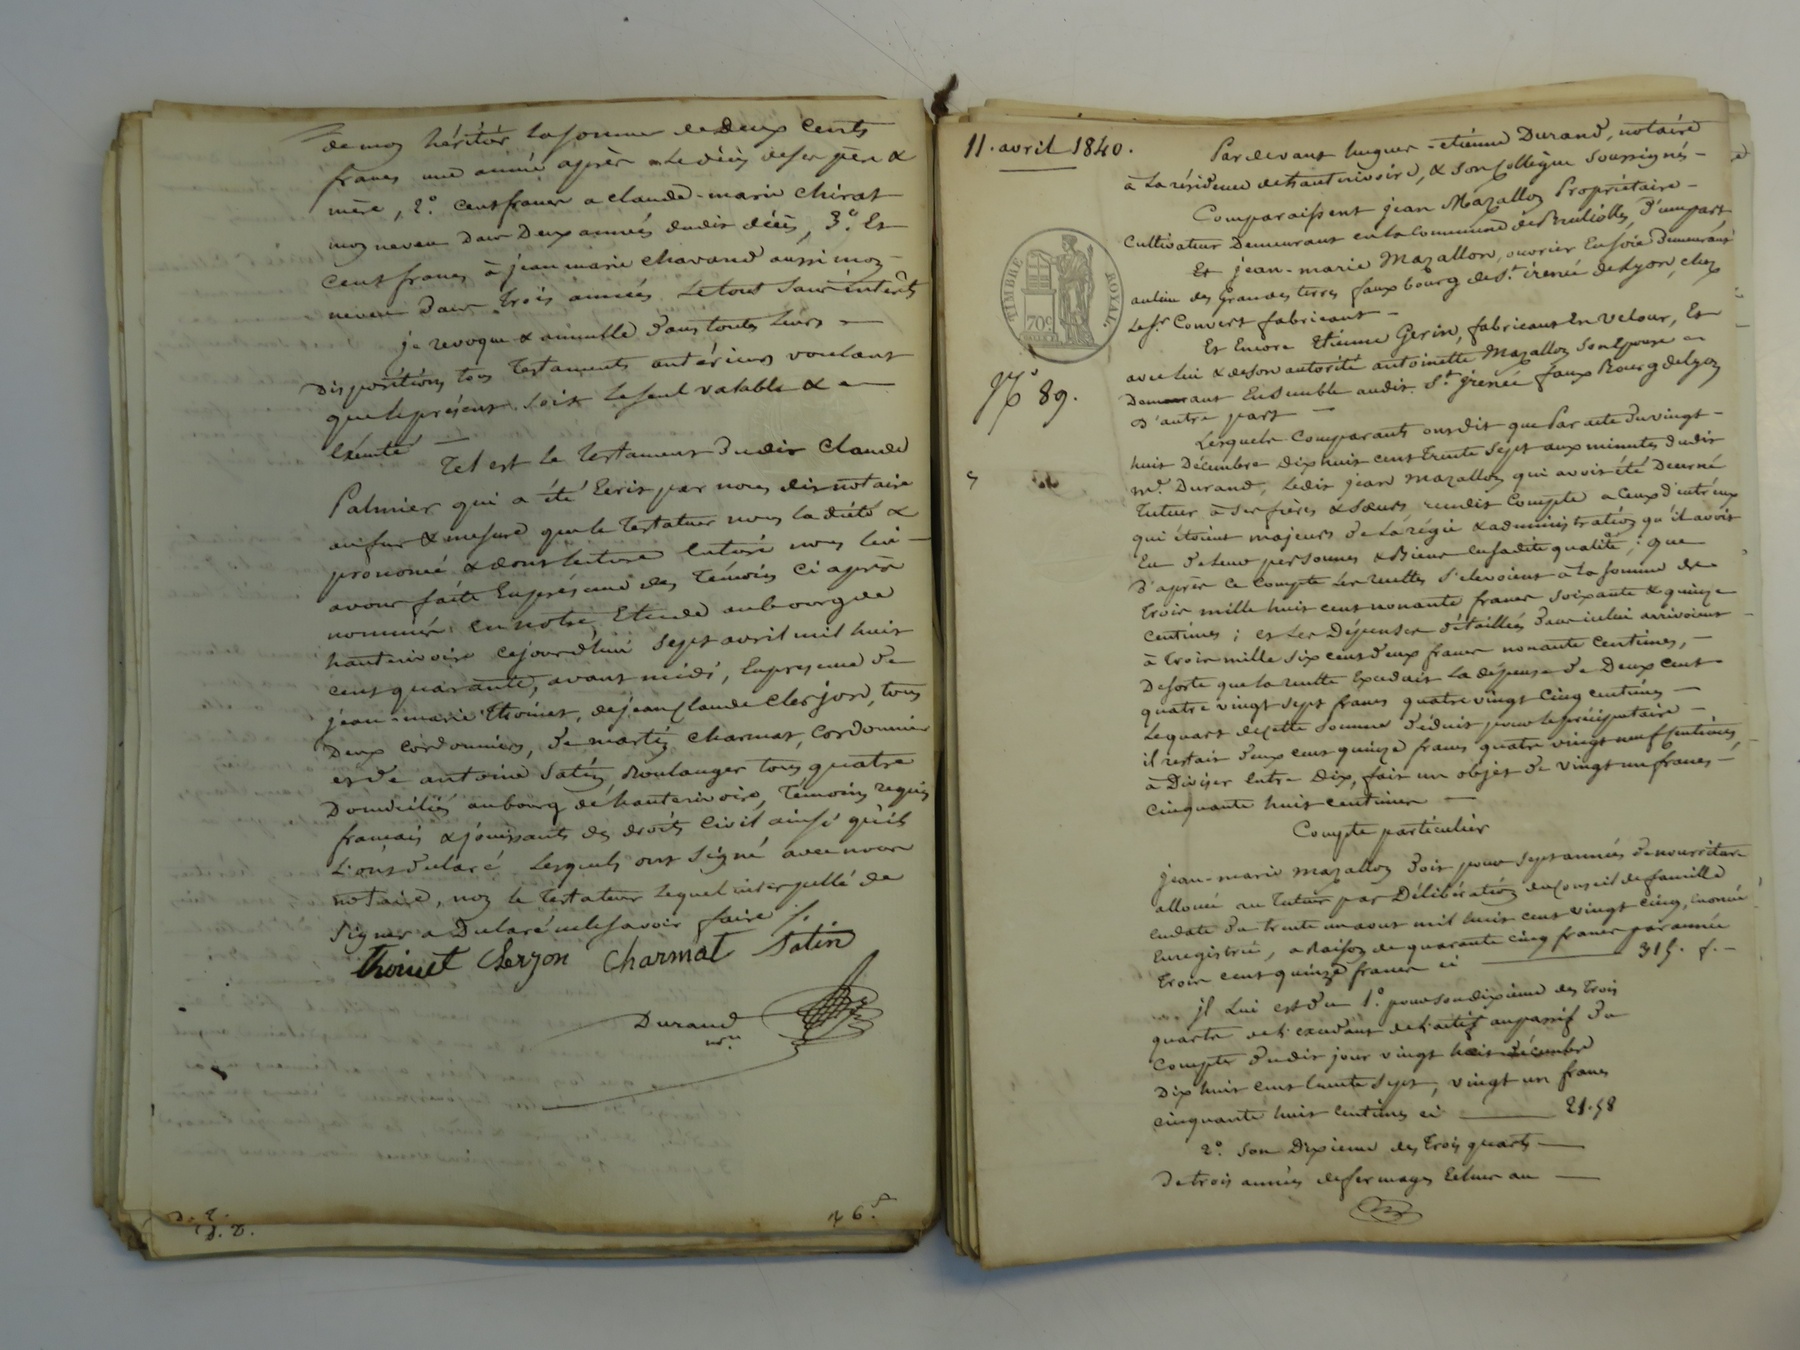 de mon héritier la somme de deux cents
francs une année après le décès de ses père &
mère, 2.° cent francs a claude-marie chirat
mon neveu dans deux années dudit décès, 3.° Et
Cent francs à jean marie chavand aussi mon
neveu dans trois années. Le tout sans intérêts
je revoque & annulle dans toutes leurs
Dispositions tous Testaments antérieurs voulant
que le présent soit le seul valable &
Exécuté
Tel est le Testament dudit Claude
Palmier qui a été Ecrit par nous dit notaire
au fur & mesure que le Testateur nous l'a dicté &
prononcé & dont lecture Entière nous lui
avons faite En présence des Témoins ci après
nommés en notre Etude au bourg de
hauterivoire cejourd'hui sept avril mil huit
cent quarante, avant midi, En présence de
jean-marie Thoinet, de jean Claude Clerjon, tous
Deux cordonniers, de martin charmat, Cordonnier
et de antoine Satin Boulanger tous quatre
Domiciliés au bourg de hauterivoire, Temoins requis
français & jouissants des droits civil ainsi qu'ils
L'ont déclaré Lesquels ont signé avec nous
notaire, non le Testateur lequel interpellé de
signer a Déclaré ne le savoir faire /.
Thoinet Clerjon Charmat Satin
Durand
nre
D. D.
d. D.
46.
11. avril 1840.
Pardevant hugues-etienne Durand, notaire
à la résidence de hauterivoire, & son collègue soussignés
Comparaissent jean Mazallon Propriétaire
Cultivateur Demeurant en la commune de Brullioles, D'une part
Et jean-marie Mazallon, ouvrier En soie demeurant
au lieu des Grandes terres faux bourg de St. irenée de Lyon, chez
Le sr. Convert fabricant
Et Encore Etienne Gerin, fabricant En velour, Et
avec lui & de son autorité antoinette Mazallon son Epouse
Demeurant Ensemble audit St. jrenée faux Bourg de Lyon
D'autre part
TIMBRE ROYAL
70c
N.° 89.
Lesquels Comparants ont dit que Par acte du vingt
huit Décembre Dix huit cent trente Sept aux minutes dudit
me. Durand, Ledit jean Mazallon qui avoit été Décerné
Tuteur à ses frères & sœurs rendit Compte a Ceux d'entr'eux
qui étoient majeurs de La régie & administration qu'il avoit
Eu de leurs personnes & Biens En sa dite qualité; Que
D'après ce Compte Les recettes s'elevoient à la somme de
trois mille huit cent nonante francs soixante & quinze
centimes; et Les Dépenses détaillées dans icelui arrivoient
à trois mille six cent deux francs nonante Centimes,
De sorte que la recette Excedait La dépense de Deux cent
quatre vingt sept francs quatre vingt Cinq centimes
Le quart de cette somme déduit pour le préciputaire
il restait deux cent quinze francs quatre vingt neuf Centimes,
à Diviser Entre Dix, fait un objet de vingt un francs
cinquante huit centimes
Compte particulier
jean-marie Mazallon doit pour sept années de nourriture
allouée au tuteur par Délibération du Conseil de famille
En date du trente un aout mil huit cent vingt cinq,
Enregistrée, a Raison de quarante cinq francs par année
Trois cent quinze francs ci 315. f.
jl Lui est du 1.° pour son dixième des trois
quarts de l'excédant de l'actif au passif du
Compte dudit jour vingt huit décembre
Dix huit cent trente sept, vingt un francs
cinquante huit centimes ci 21.58
2.° Son Dixieme des trois quarts
De trois années de fermages Echus au